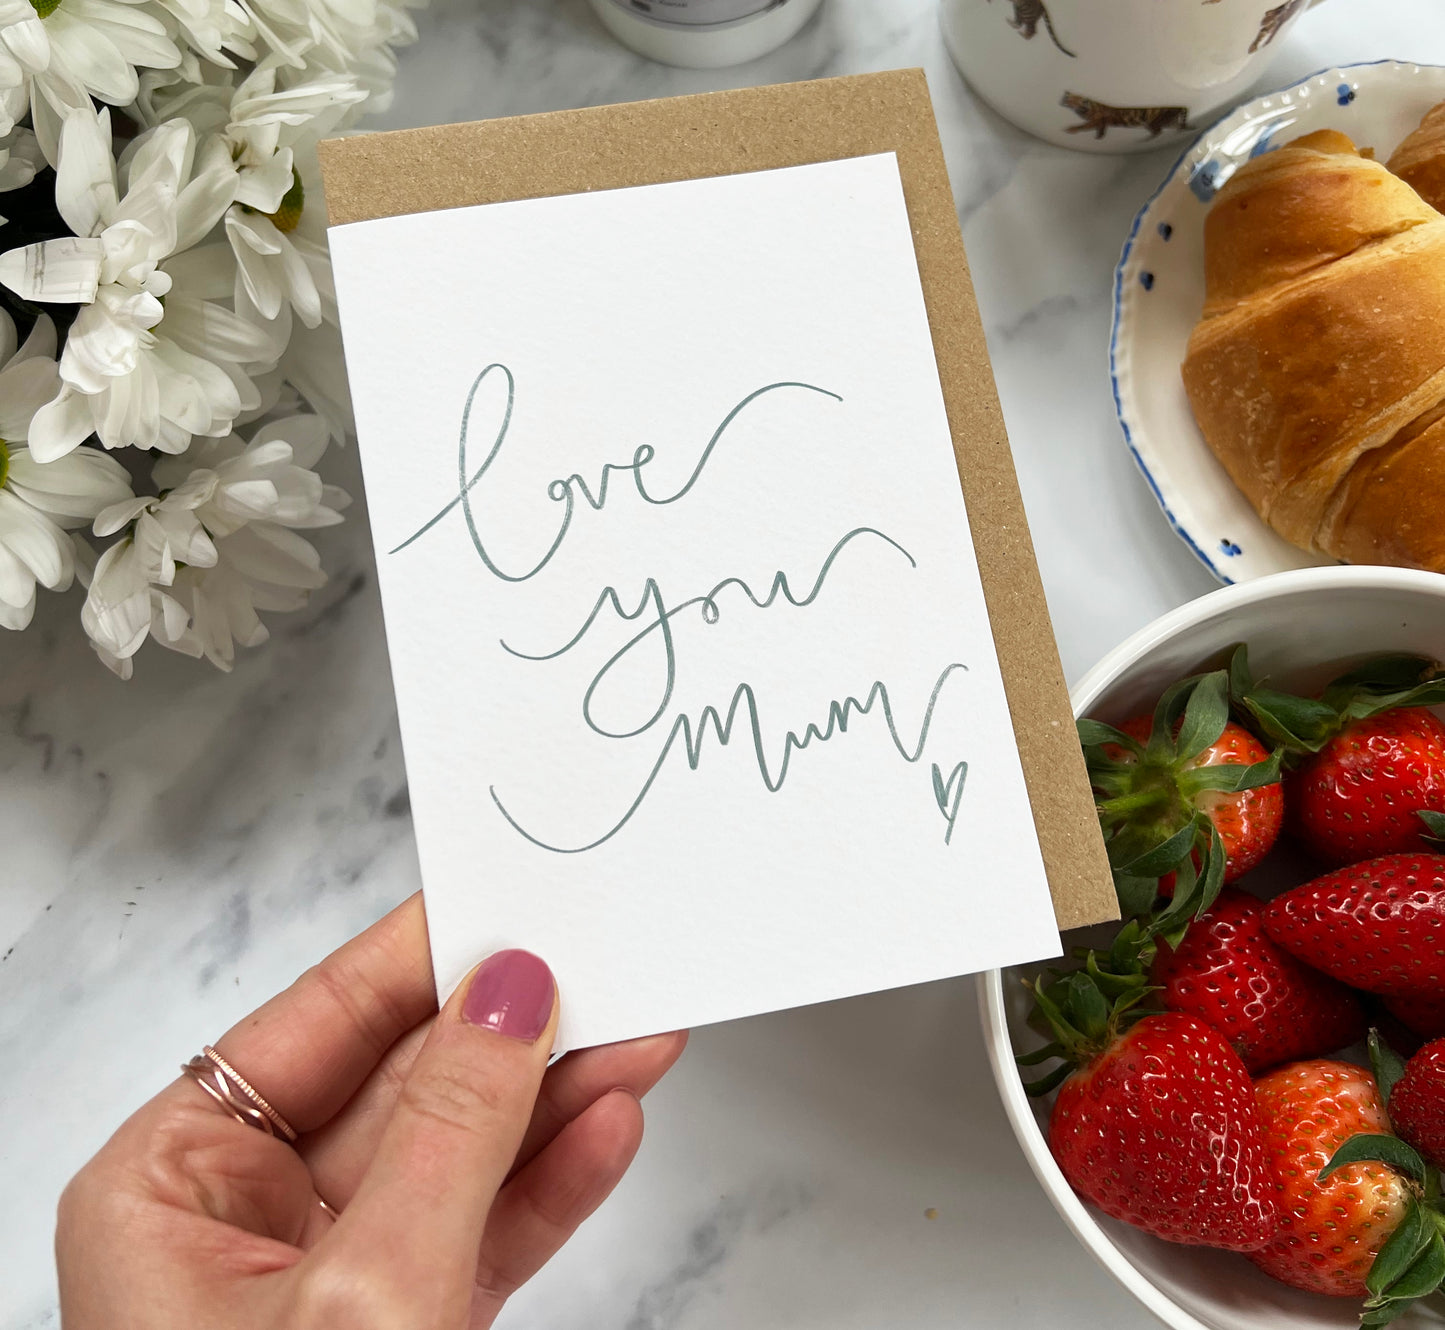 love
you
Mum